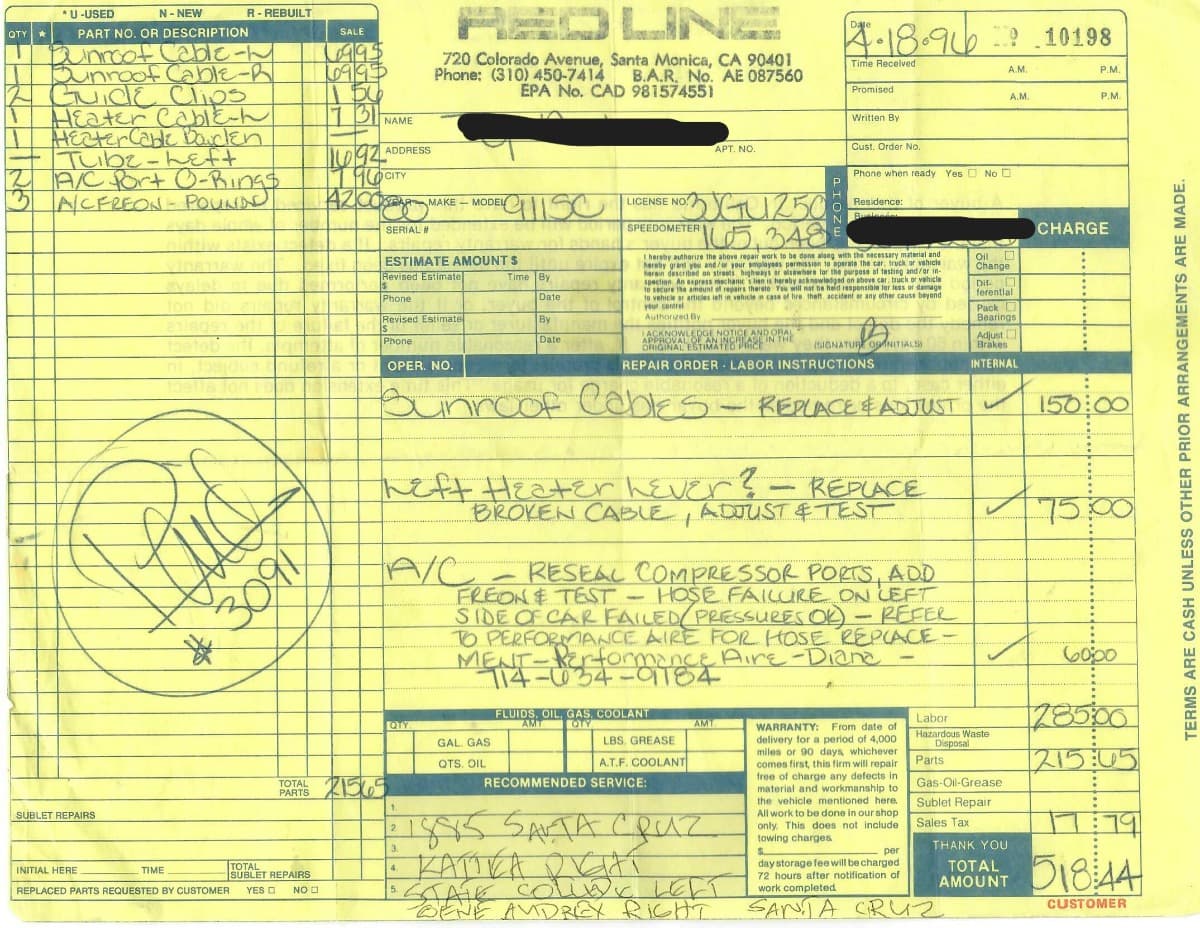 * U - USED N - NEW R - REBUILT
QTY * PART NO. OR DESCRIPTION SALE
1 Sunroof Cable-L 69 95
1 Sunroof Cable-R 69 95
2 Guide Clips 1 56
1 Heater Cable-L 7 31
1 Heater Cable —
— Tube - Left 16 92
2 A/C Port O-Rings 7 96
3 A/C FREON - POUND 42 00
TOTAL PARTS 215 65
SUBLET REPAIRS
INITIAL HERE TIME TOTAL SUBLET REPAIRS
REPLACED PARTS REQUESTED BY CUSTOMER YES □ NO □
3091
RED LINE
720 Colorado Avenue, Santa Monica, CA 90401
Phone: (310) 450-7414 B.A.R. No. AE 087560
EPA No. CAD 981574551
Date 4.18.96 10198
Time Received A.M. P.M.
Promised A.M. P.M.
Written By
Cust. Order No.
Phone when ready Yes □ No □
PHONE
Residence:
NAME
ADDRESS APT. NO.
CITY
YEAR - MAKE - MODEL 80 911SC LICENSE NO. 3JGU250
SERIAL # SPEEDOMETER 165,348
CHARGE
ESTIMATE AMOUNT $
Revised Estimate $ Time By
Phone Date
Revised Estimate $ By
Phone Date
I hereby authorize the above repair work to be done along with the necessary material and
hereby grant you and/or your employees permission to operate the car, truck or vehicle
herein described on streets, highways or elsewhere for the purpose of testing and/or in-
spection. An express mechanic's lien is hereby acknowledged on above car, truck or vehicle
to secure the amount of repairs thereto. You will not be held responsible for loss or damage
to vehicle or articles left in vehicle in case of fire, theft, accident or any other cause beyond
your control.
Authorized By
I ACKNOWLEDGE NOTICE AND ORAL
APPROVAL OF AN INCREASE IN THE
ORIGINAL ESTIMATED PRICE (SIGNATURE OR INITIALS)
Oil Change □
Dif-ferential □
Pack Bearings □
Adjust Brakes □
OPER. NO. REPAIR ORDER - LABOR INSTRUCTIONS INTERNAL
Sunroof Cables — REPLACE & ADJUST ✓ 150 00
Left Heater Lever? — REPLACE
BROKEN CABLE, ADJUST & TEST ✓ 75 00
A/C — RESEAL COMPRESSOR PORTS, ADD
FREON & TEST — HOSE FAILURE ON LEFT
SIDE OF CAR FAILED (PRESSURES OK) — REFER
TO PERFORMANCE AIRE FOR HOSE REPLACE-
MENT — Performance Aire - Diana — ✓ 60 00
714-634-9184
FLUIDS, OIL, GAS, COOLANT
QTY. AMT. QTY. AMT.
GAL. GAS LBS. GREASE
QTS. OIL A.T.F. COOLANT
RECOMMENDED SERVICE:
1.
2. 1885 SANTA CRUZ
3.
4. RIGHT
5. STATE COLLEGE LEFT
GENE AUTREY RIGHT SANTA CRUZ
WARRANTY: From date of
delivery for a period of 4,000
miles or 90 days, whichever
comes first, this firm will repair
free of charge any defects in
material and workmanship to
the vehicle mentioned here.
All work to be done in our shop
only. This does not include
towing charges.
$ per
day storage fee will be charged
72 hours after notification of
work completed.
Labor 285 00
Hazardous Waste Disposal
Parts 215 65
Gas-Oil-Grease
Sublet Repair
Sales Tax 17 79
THANK YOU
TOTAL AMOUNT 518 44
CUSTOMER
TERMS ARE CASH UNLESS OTHER PRIOR ARRANGEMENTS ARE MADE.